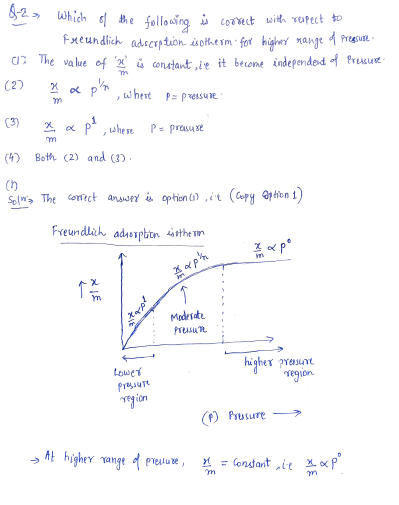 Q-2 → Which of the following is correct with respect to
Freundlich adsorption isotherm for higher range of Pressure.
(1) The value of 'x/m' is constant, i.e it become independent of Pressure.
(2) x/m ∝ P^1/n, where P = pressure.
(3) x/m ∝ P^1, where P = pressure
(4) Both (2) and (3).
(1)
Soln → The correct answer is option (1), i.e (Copy Option 1)
Freundlich adsorption isotherm
x/m ∝ P^0
x/m ∝ P^1/n
↑ x/m
x/m ∝ P^1
Moderate
Pressure
Lower
pressure
region
higher pressure
region
(P) Pressure →
→ At higher range of pressure, x/m = Constant, i.e x/m ∝ P^0